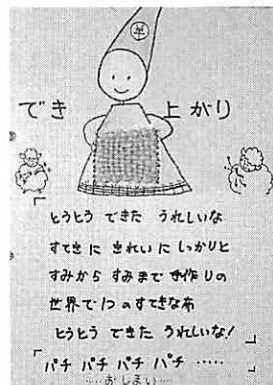 羊
でき上がり
「
とうとう できた うれしいな
すてきに きれいに しっかりと
すみから すみまで 手作りの
世界で1つのすてきな布
とうとう できた うれしいな!
」
「パチ パチ パチ パチ ……」
……おしまい……